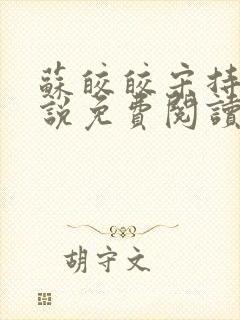 蘇皎皎宋持
說免費閱讀
胡守文